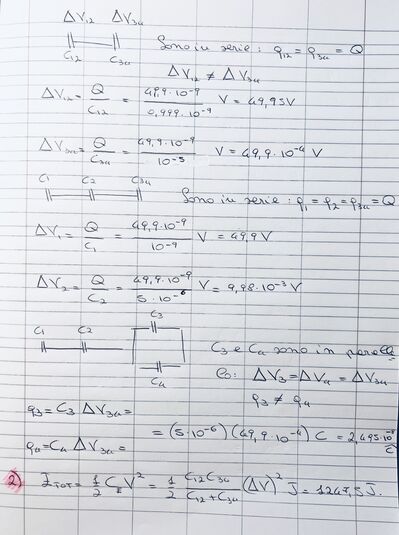 ΔV₁₂ ΔV₃₄
C₁₂ C₃₄ Sono in serie: q₁₂ = q₃₄ = Q
ΔV₁₂ ≠ ΔV₃₄
ΔV₁₂ = Q/C₁₂ = 49,9·10⁻⁹/0,999·10⁻⁹ V = 49,95V
ΔV₃₄ = Q/C₃₄ = 49,9·10⁻⁹/10⁻⁵ V = 49,9·10⁻⁴ V
C₁ C₂ C₃₄ Sono in serie: q₁ = q₂ = q₃₄ = Q
ΔV₁ = Q/C₁ = 49,9·10⁻⁹/10⁻⁹ V = 49,9 V
ΔV₂ = Q/C₂ = 49,9·10⁻⁹/5·10⁻⁶ V = 9,98·10⁻³ V
C₃
C₁ C₂ C₃ e C₄ sono in paralle
C₄ lo: ΔV₃ = ΔV₄ = ΔV₃₄
q₃ ≠ q₄
q₃ = C₃ ΔV₃₄ =
= (5·10⁻⁶)(49,9·10⁻⁴) C = 2,495·10⁻⁸ C
q₄ = C₄ ΔV₃₄ =
2) = 1/2 V² = 1/2 C₁₂C₃₄/C₁₂+C₃₄ (ΔV)² J = 1247,5 J.